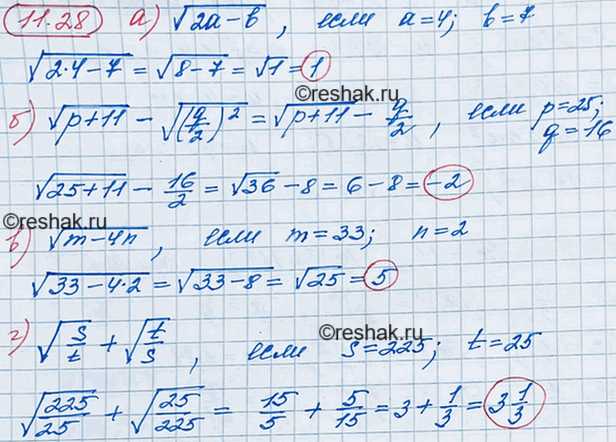 11.28 а) √(2a-b), если a=4; b=7
√(2·4-7) = √(8-7) = √1 = 1
©reshak.ru
б) √(p+11) - √((q/2)²) = √(p+11) - q/2, если p=25;
q=16
√(25+11) - 16/2 = √36 - 8 = 6 - 8 = -2
©reshak.ru
в) √(m-4n), если m=33; n=2
√(33-4·2) = √(33-8) = √25 = 5
©reshak.ru
г) √(s/t) + √(t/s), если s=225; t=25
√(225/25) + √(25/225) = 15/5 + 5/15 = 3 + 1/3 = 3 1/3